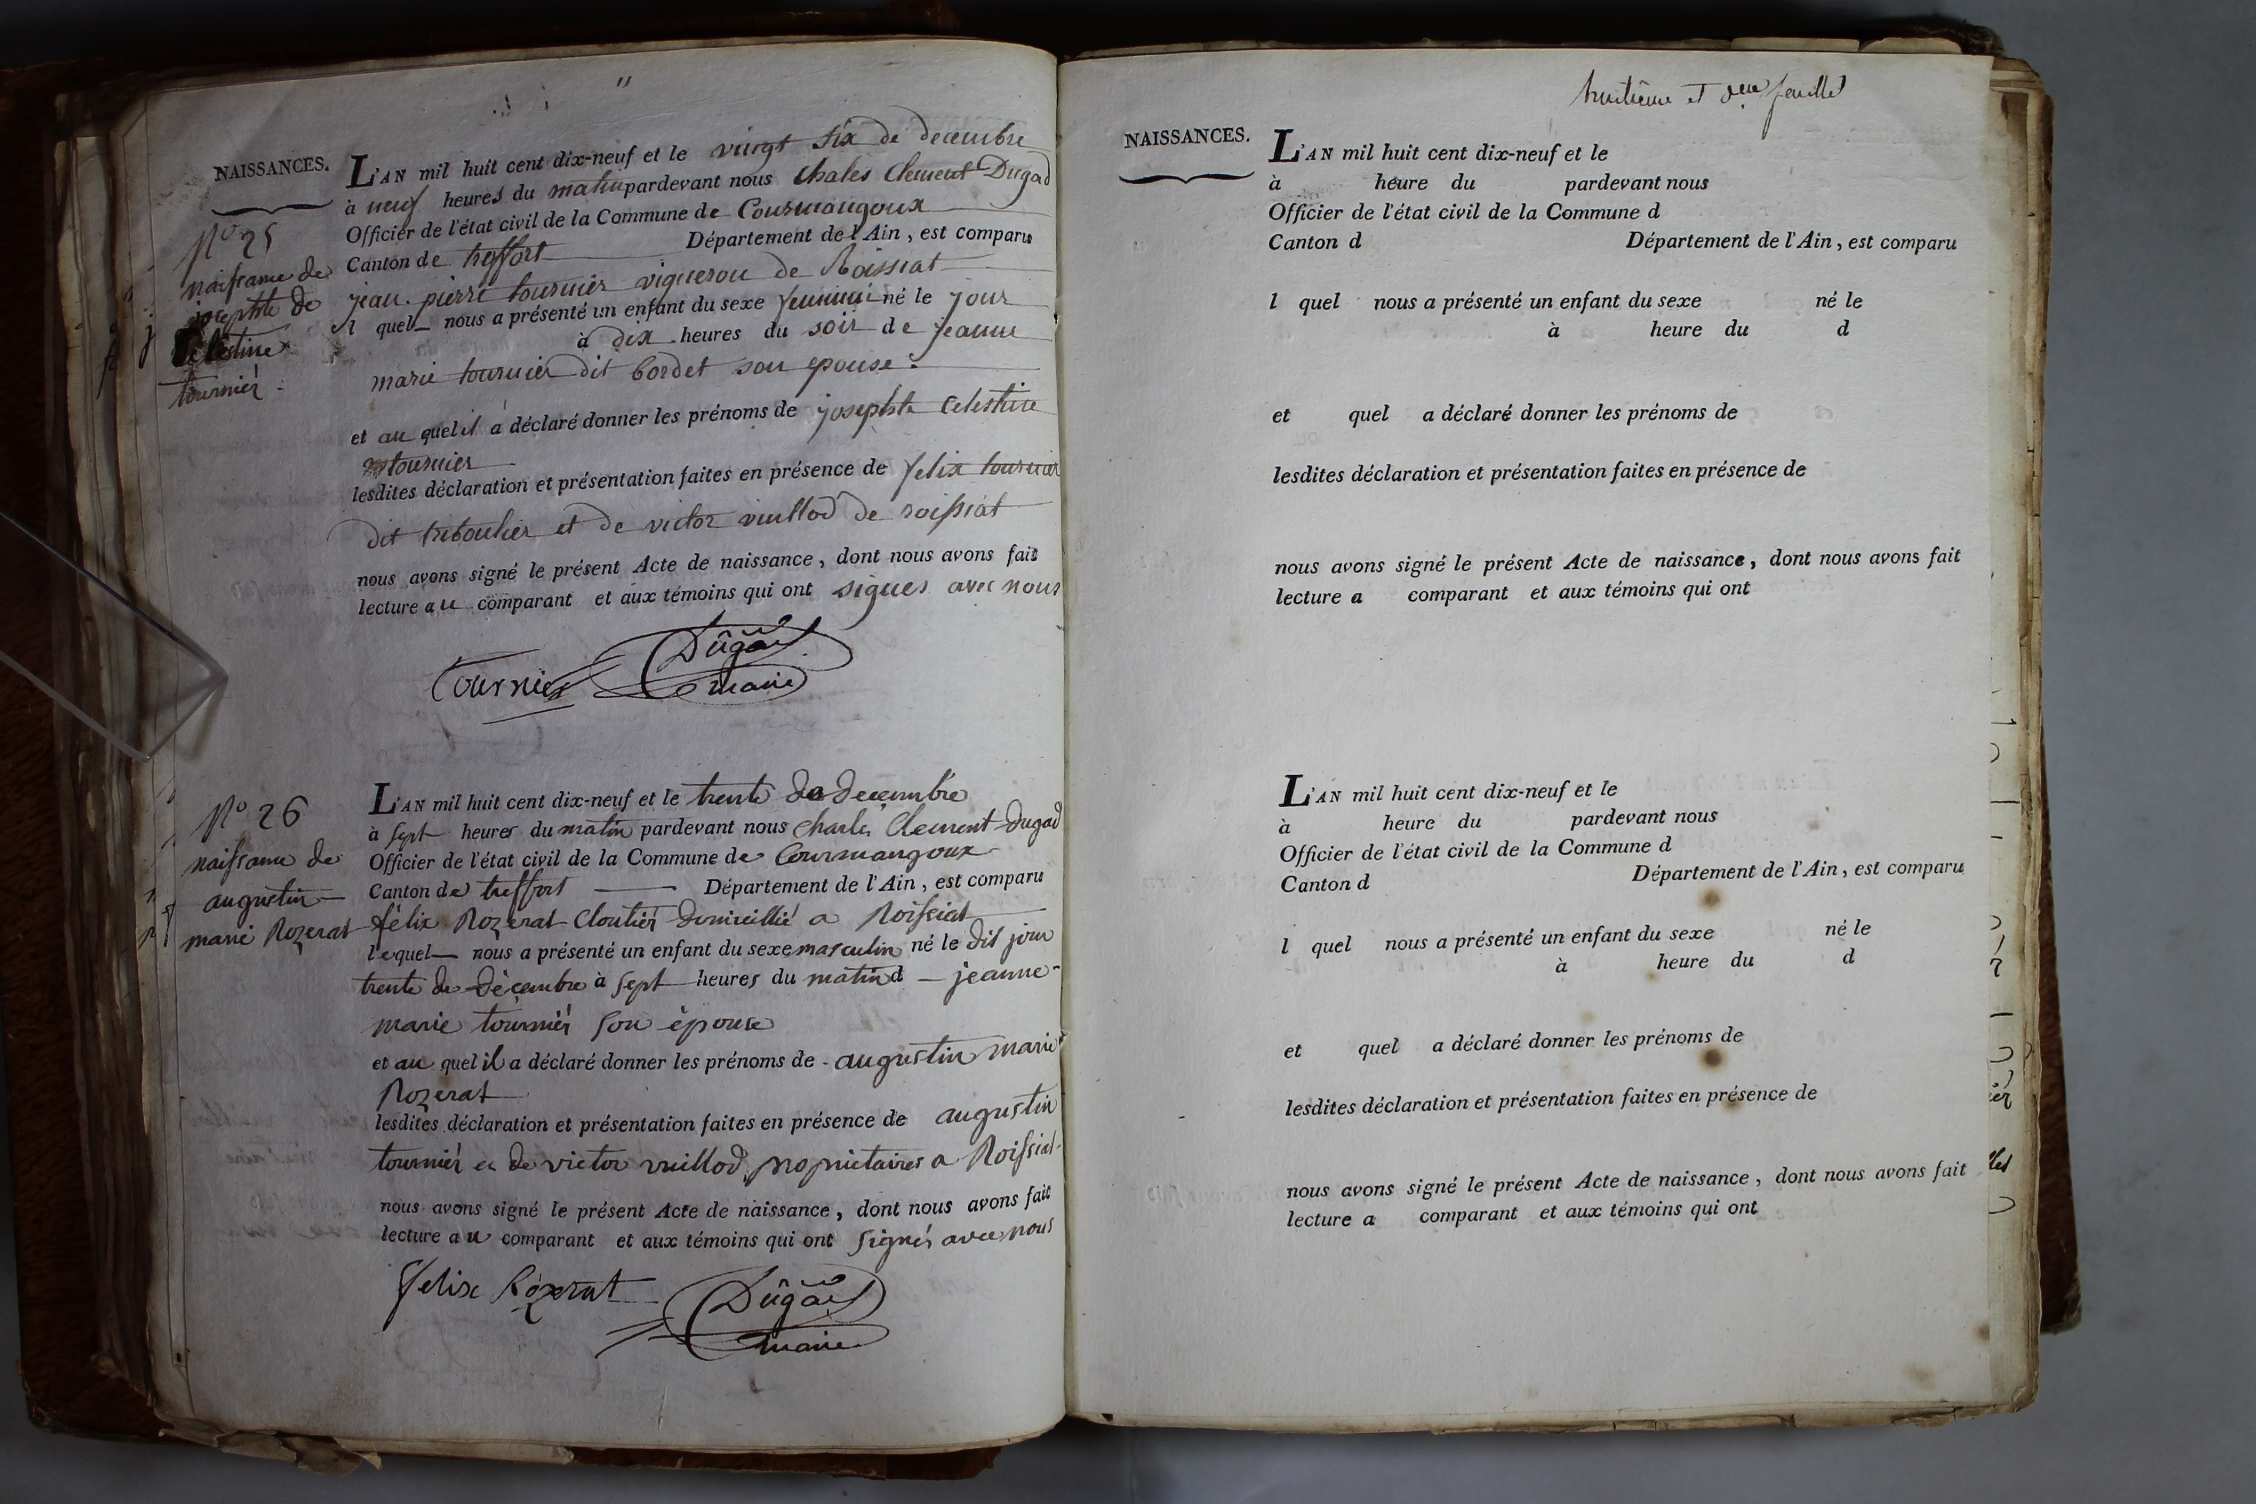 NAISSANCES.
N.o 25
naissance de
josephte de
célestine
tournier
L'AN mil huit cent dix-neuf et le vingt six de decembre
à neuf heures du matin pardevant nous Chales Clement Dugad
Officier de l'état civil de la Commune de Courmangoux
Canton de treffort Département de l'Ain, est comparu
jean pierre tournier vigneron de Roissiat
l quel nous a présenté un enfant du sexe feminin né le jour
à dix heures du soir de jeanne
marie tournier dit bordet son epouse.
et au quel il a déclaré donner les prénoms de josephte celestine
tournier
lesdites déclaration et présentation faites en présence de felix tournier
dit triboulier et de victor vuillod de roissiat
nous avons signé le présent Acte de naissance, dont nous avons fait
lecture au comparant et aux témoins qui ont signes avec nous
Tournier Dugad
maire
N.o 26
naissance de
augustin
marie Rozerat
L'AN mil huit cent dix-neuf et le trente de decembre
à sept heures du matin pardevant nous Charles Clement Dugad
Officier de l'état civil de la Commune de Courmangoux
Canton de treffort Département de l'Ain, est comparu
félix Rozerat Cloutier domicillié a Roissiat
lequel nous a présenté un enfant du sexe masculin né le dit jour
trente de décembre à sept heures du matin d jeanne
marie tournier son épouse
et au quel il a déclaré donner les prénoms de augustin marie
Rozerat
lesdites déclaration et présentation faites en présence de augustin
tournier et de victor vuillod propriétaires a Roissiat
nous avons signé le présent Acte de naissance, dont nous avons fait
lecture au comparant et aux témoins qui ont signés avec nous
felix Rozerat Dugad
maire
huitième et feuillet
NAISSANCES.
L'AN mil huit cent dix-neuf et le
à heure du pardevant nous
Officier de l'état civil de la Commune d
Canton d Département de l'Ain, est comparu
l quel nous a présenté un enfant du sexe né le
à heure du d
et quel a déclaré donner les prénoms de
lesdites déclaration et présentation faites en présence de
nous avons signé le présent Acte de naissance, dont nous avons fait
lecture a comparant et aux témoins qui ont
L'AN mil huit cent dix-neuf et le
à heure du pardevant nous
Officier de l'état civil de la Commune d
Canton d Département de l'Ain, est comparu
l quel nous a présenté un enfant du sexe né le
à heure du d
et quel a déclaré donner les prénoms de
lesdites déclaration et présentation faites en présence de
nous avons signé le présent Acte de naissance, dont nous avons fait
lecture a comparant et aux témoins qui ont